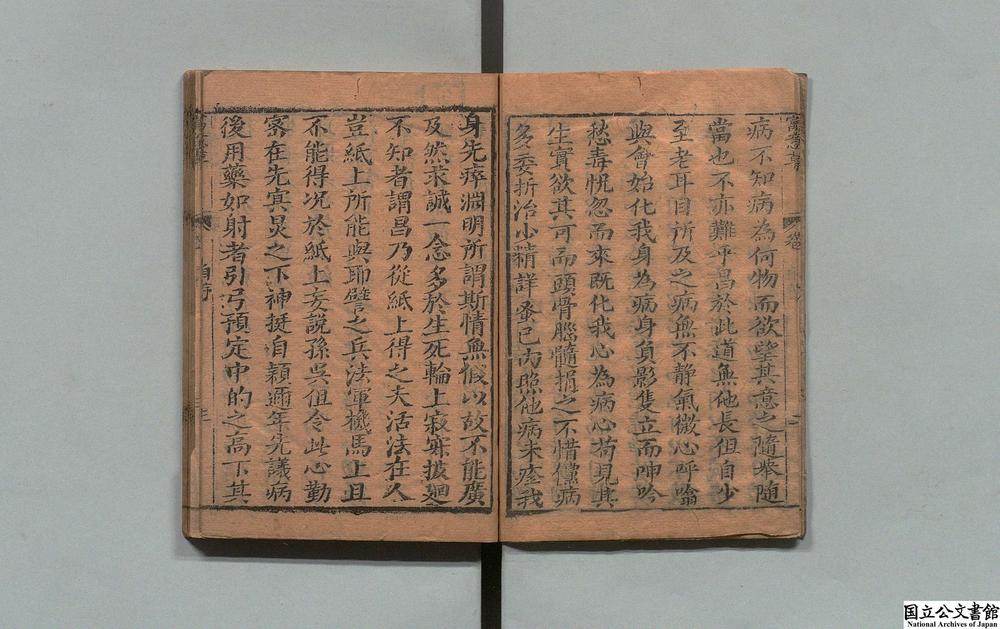 病不知病為何物而欲望其意之隨举随
當也不亦難乎昌於此道無他長但自少
至老耳目所及之病無不静氣微心呼噏
與會始化我身為病身負影隻立而呻吟
愁毒恍忽而來既化我心為病心苟見其
生實欲其可而頭骨腦髓捐之不惜儻病
多委折治少精詳蚤已內照他病未痊我
身先瘁淵明所謂斯情無假以故不能廣
及然求誠一念多於生死輪上寂寞披廻
不知者謂昌乃從紙上得之夫活法在人
豈紙上所能與耶譬之兵法軍機馬上且
不能得况於紙上妄說孫吳但令此心勤
宻在先冥炅之下神挺自穎邇年先議病
後用藥如射者引弓預定中的之高下其
寓意草
自序
国立公文書館
National Archives of Japan